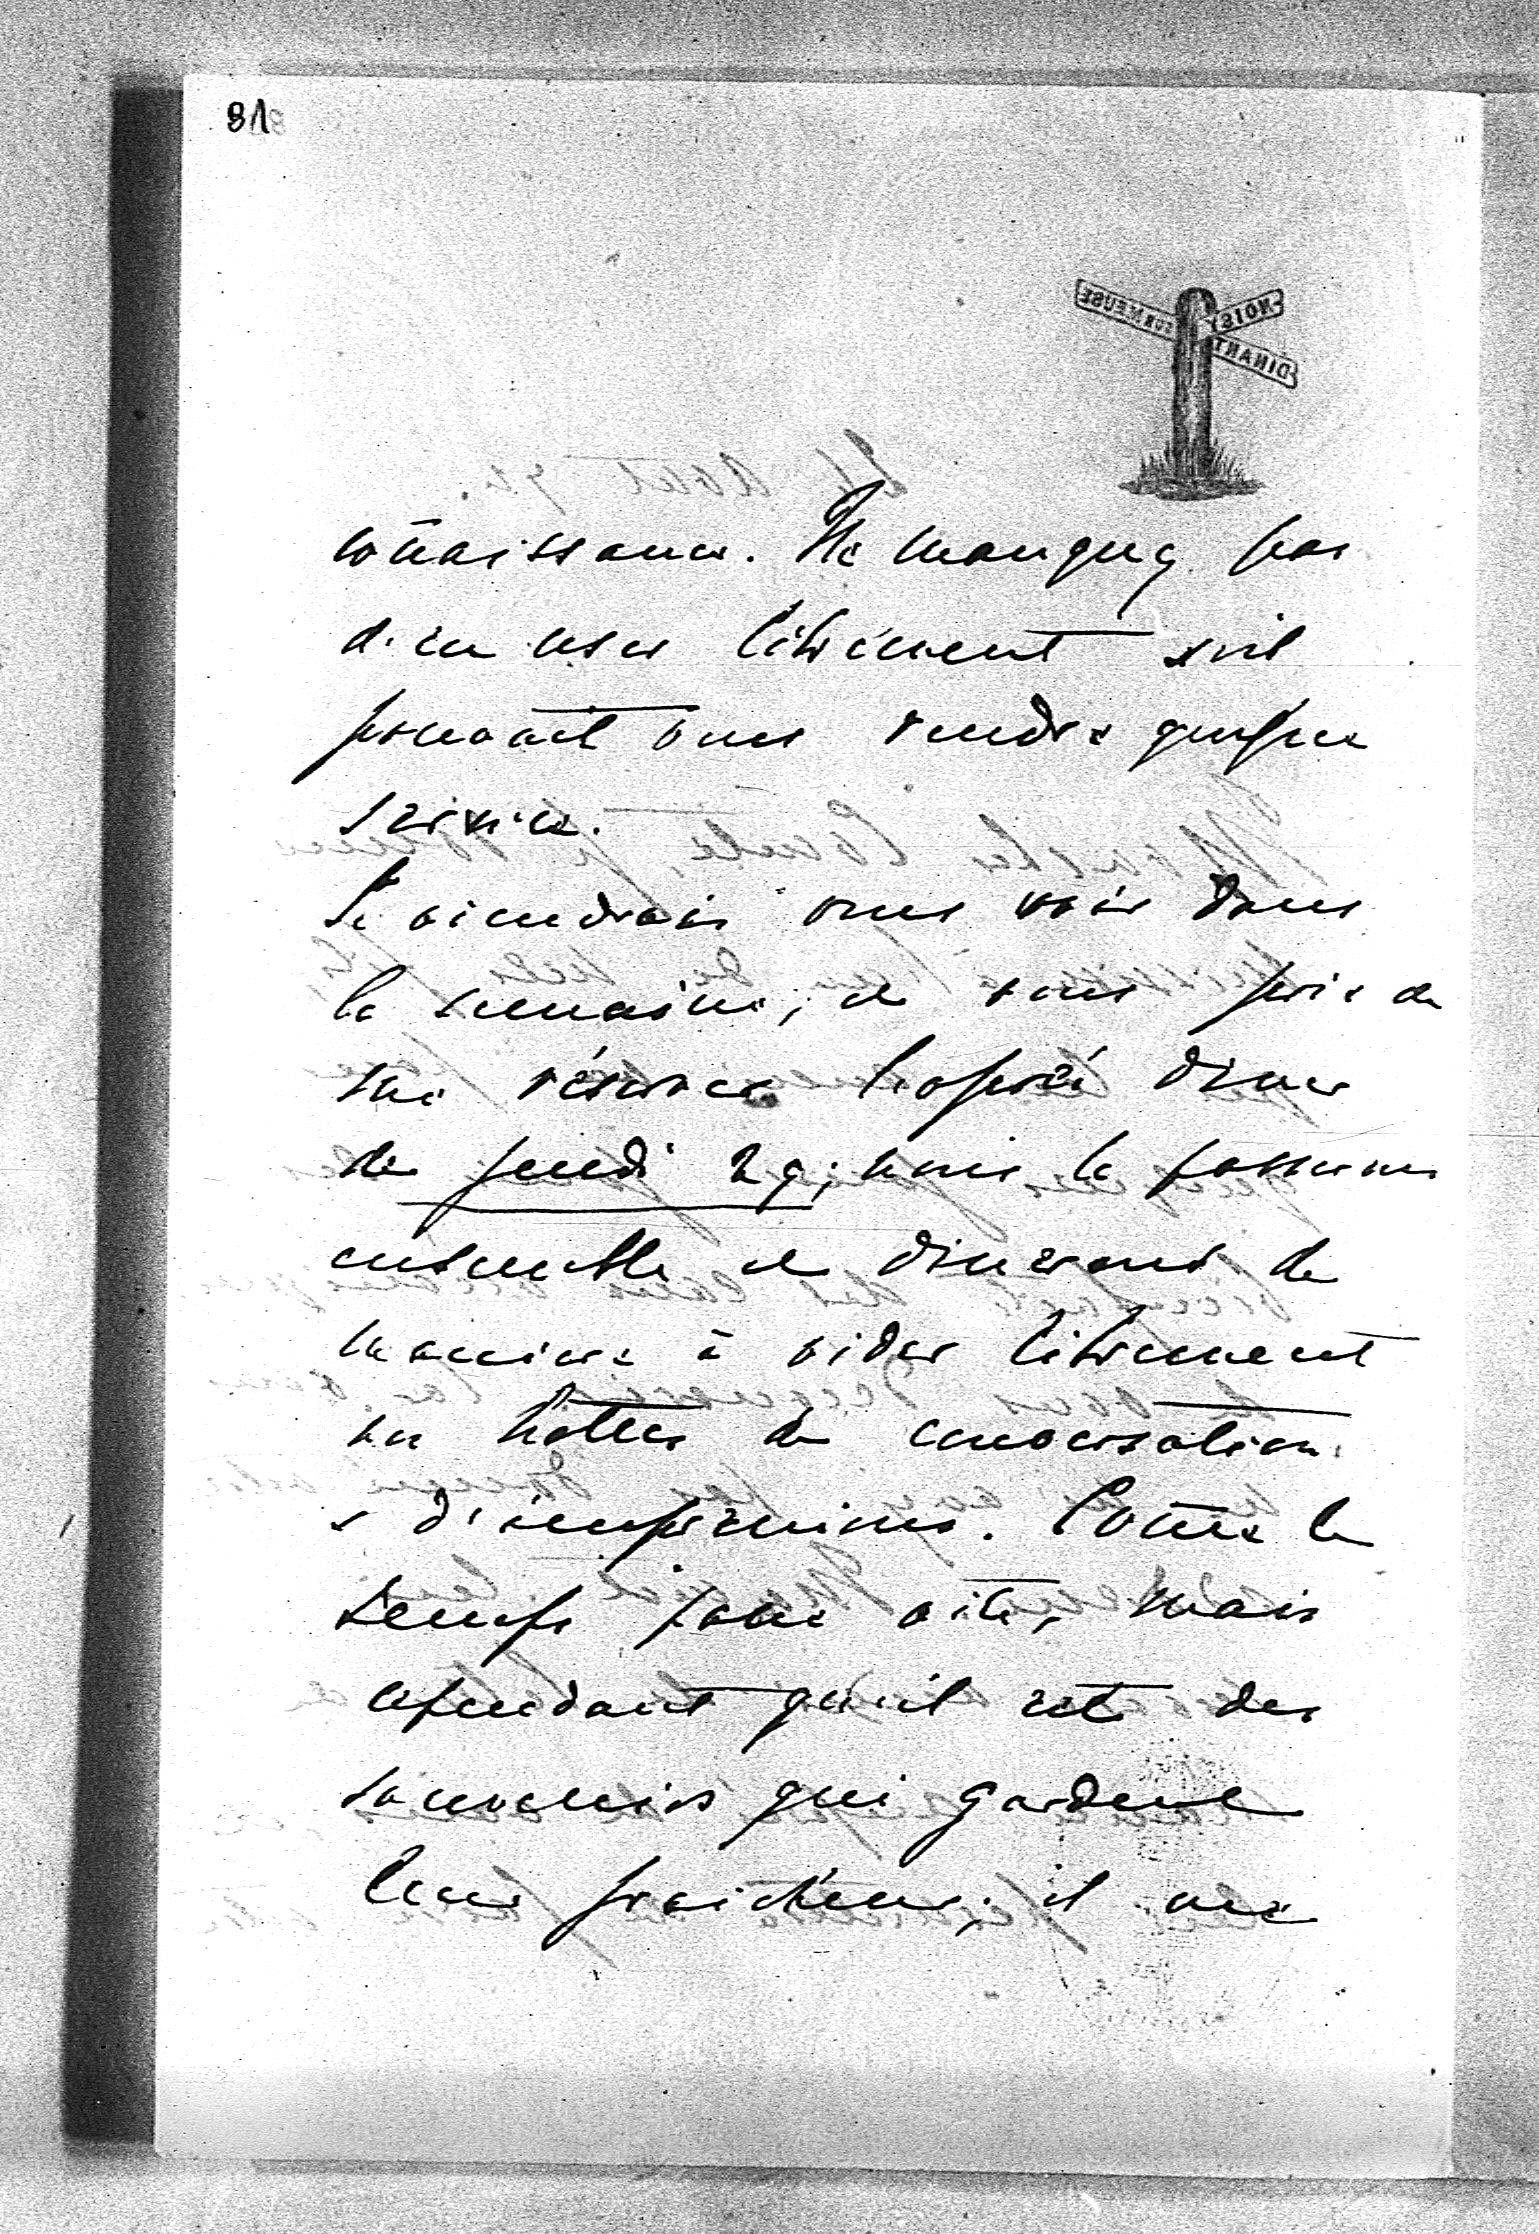 81
connaissance. Ne manquez pas
d'en user librement s'il
pouvait vous rendre quelque
service.
Je viendrai vous voir dans
la semaine; et vous prie de
me réserver l'après dîner
de jeudi 29; nous le passerons
ensemble et dinerons de
manière à vider librement
nos hottes de conversation
& d'impressions. Comme le
temps passe vite, mais
cependant qu'il est des
souvenirs qui gardent
leur fraicheur; il me